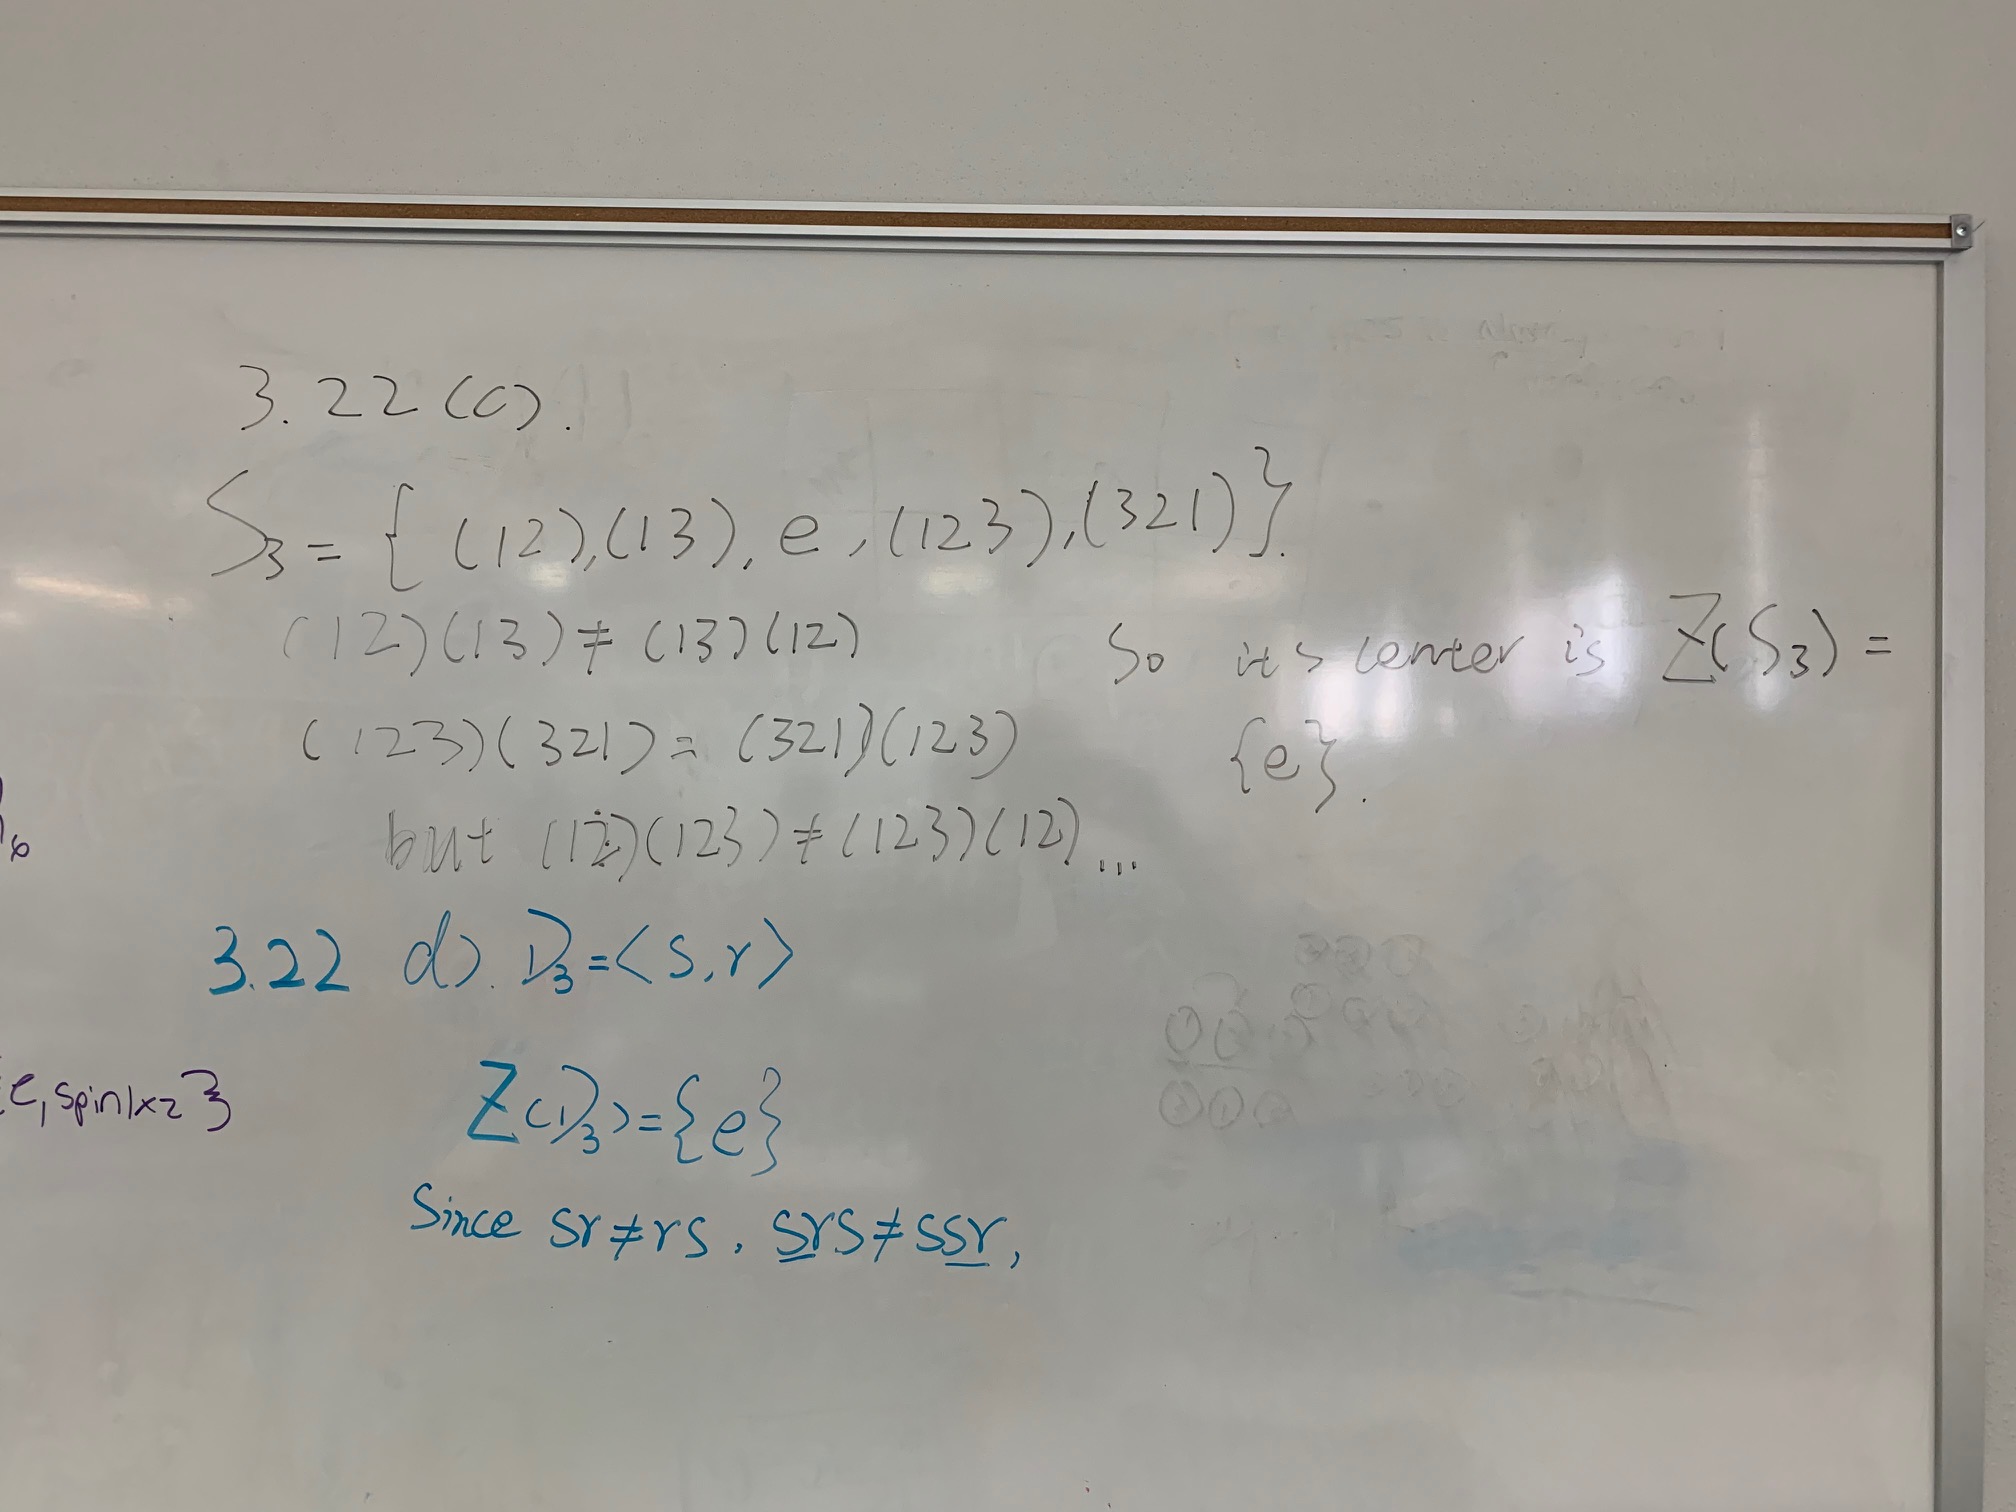 3.22 (c).
S₃ = { (12), (13), e, (123), (321) }.
(12)(13) ≠ (13)(12)
(123)(321) = (321)(123)
but (12)(123) ≠ (123)(12) ...
So its center is Z(S₃) =
{e}.
3.22 d). D₃ = <s, r>
Z(D₃) = {e}
Since sr ≠ rs, srs ≠ ssr,
e, spin1x2 }